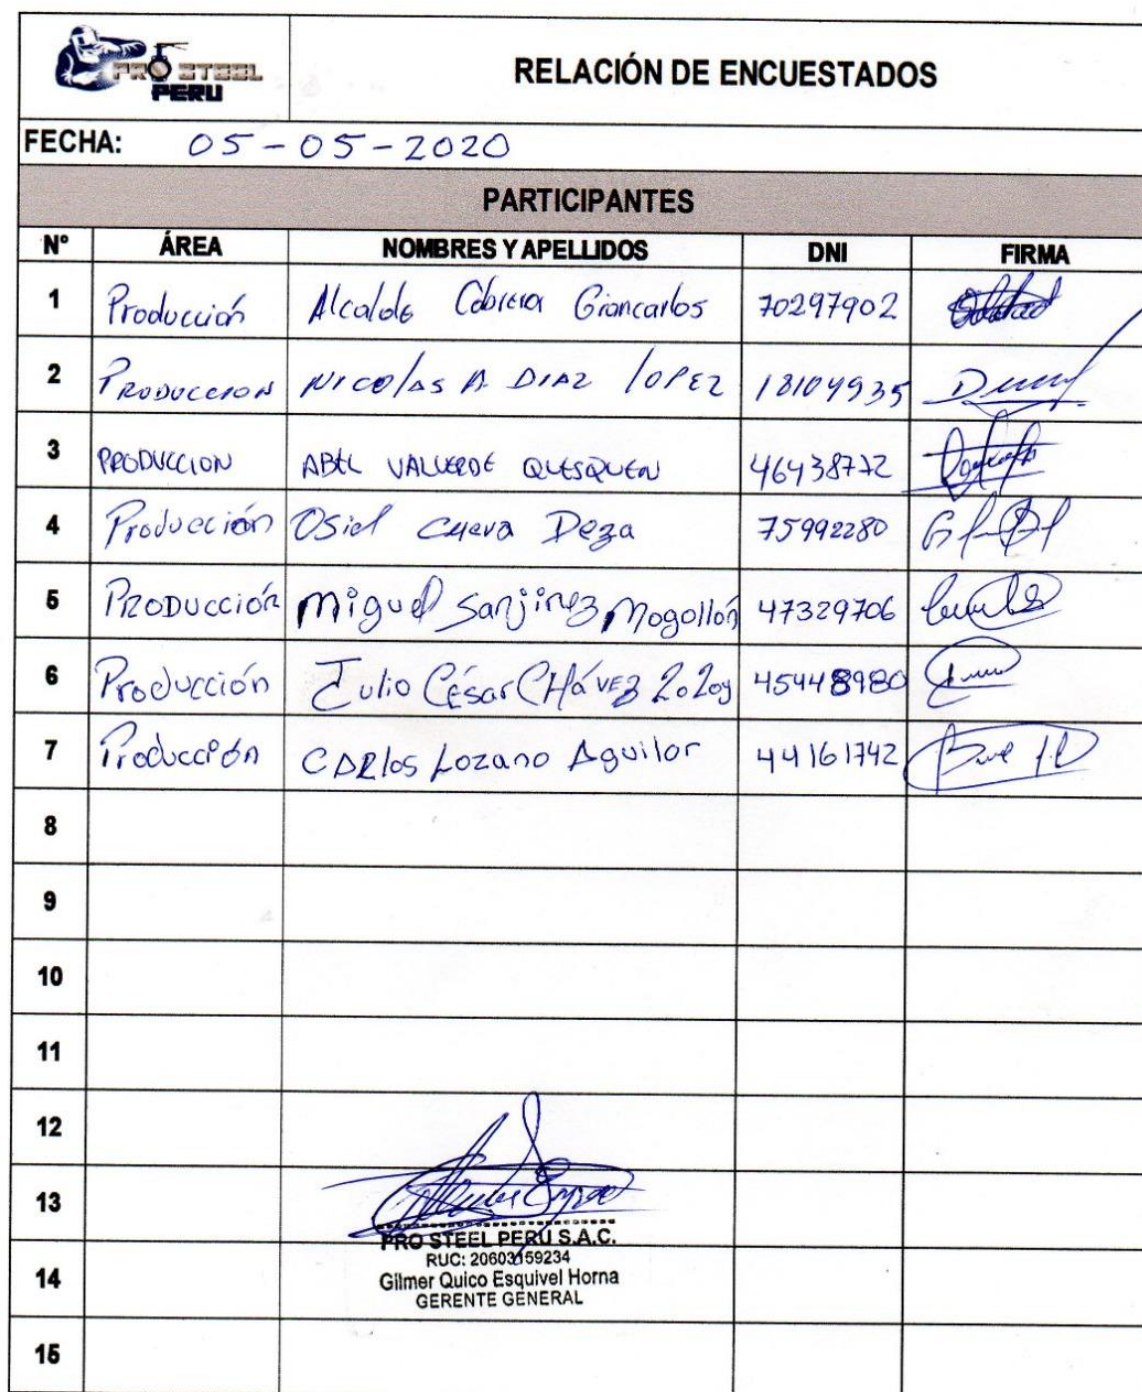 PRO STEEL
PERU
RELACIÓN DE ENCUESTADOS
FECHA: 05-05-2020
PARTICIPANTES
N° ÁREA NOMBRES Y APELLIDOS DNI FIRMA
1 Producción Alcalde Cabrera Giancarlos 70297902
2 PRODUCCION NICOlAS A DIAZ lOPEZ 18104935
3 PRODUCCION ABEL VALVERDE QUESQUEN 46438772
4 Producción Osiel Cueva Deza 75992280
5 PRODUCCIÓN Miguel Sanjinez Mogollón 47329706
6 Producción Julio César CHÁVEZ 45448980
7 Producción CARlos Lozano Aguilar 44161742
8
9
10
11
12
13
PRO STEEL PERÚ S.A.C.
RUC: 20603159234
14 Gilmer Quico Esquivel Horna
GERENTE GENERAL
15